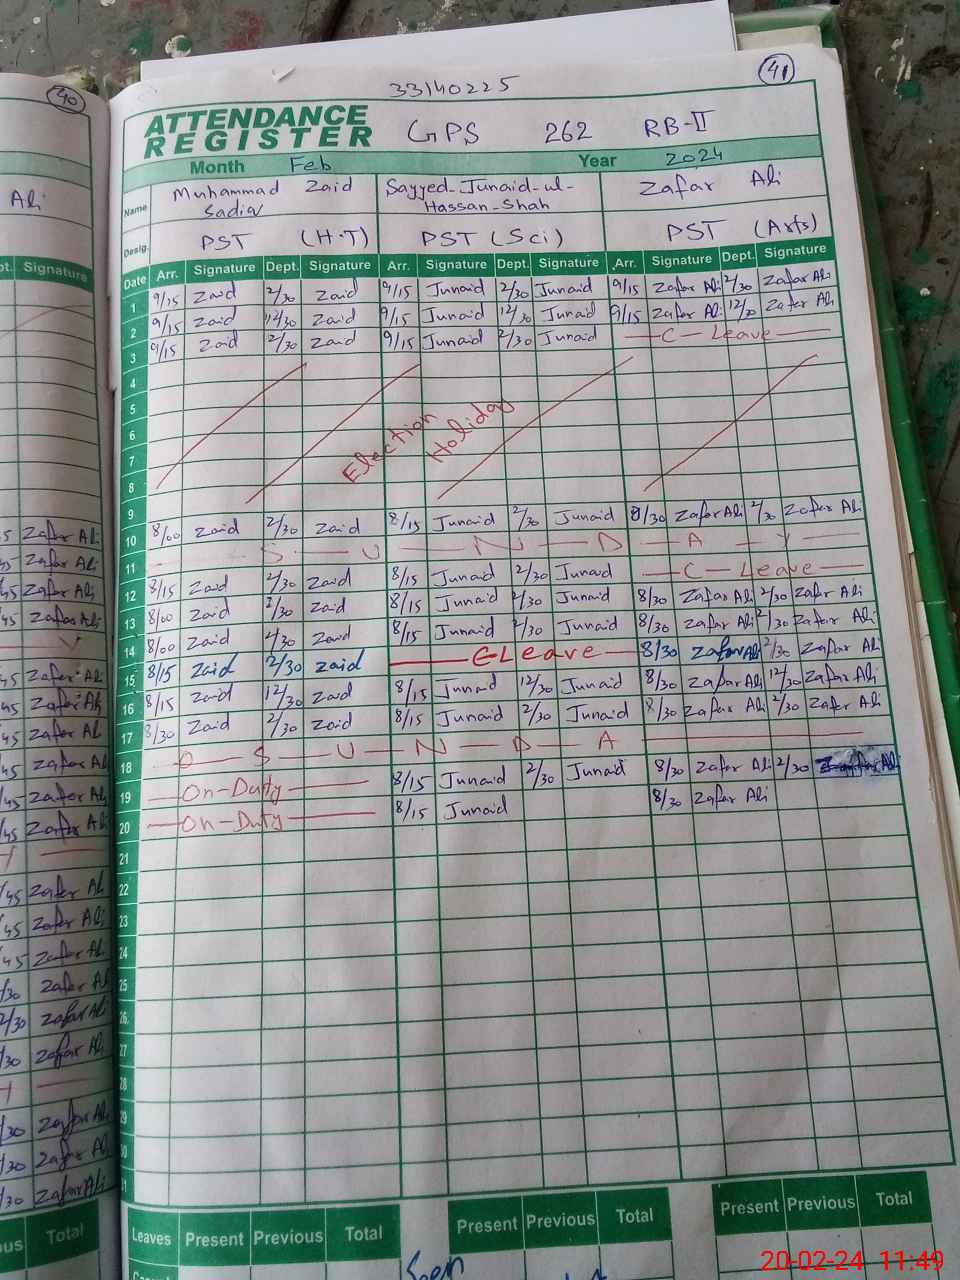 40
41
33140225
ATTENDANCE
REGISTER
GPS 262 RB-II
Month Feb Year 2024
Name Muhammad Zaid Sayyed-Junaid-ul-Hassan-Shah Zafar Ali
Desig. PST (H.T) PST (Sci) PST (Arts)
Date Arr. Signature Dept. Signature Arr. Signature Dept. Signature Arr. Signature Dept. Signature
1 9/15 Zaid 2/30 Zaid 9/15 Junaid 2/30 Junaid 9/15 Zafar Ali 2/30 Zafar Ali
2 9/15 Zaid 12/30 Zaid 9/15 Junaid 12/30 Junaid 9/15 Zafar Ali 12/30 Zafar Ali
3 9/15 Zaid 2/30 Zaid 9/15 Junaid 2/30 Junaid C - Leave
4
5
6
7
8
Election Holiday
9
10 8/00 Zaid 2/30 Zaid 8/15 Junaid 2/30 Junaid 8/30 Zafar Ali 2/30 Zafar Ali
11 S U N D A Y
12 8/15 Zaid 2/30 Zaid 8/15 Junaid 2/30 Junaid C - Leave
13 8/00 Zaid 2/30 Zaid 8/15 Junaid 2/30 Junaid 8/30 Zafar Ali 2/30 Zafar Ali
14 8/00 Zaid 2/30 Zaid 8/15 Junaid 2/30 Junaid 8/30 Zafar Ali 2/30 Zafar Ali
15 8/15 Zaid 2/30 Zaid C Leave 8/30 Zafar Ali 2/30 Zafar Ali
16 8/15 Zaid 12/30 Zaid 8/15 Junaid 12/30 Junaid 8/30 Zafar Ali 12/30 Zafar Ali
17 8/30 Zaid 2/30 Zaid 8/15 Junaid 2/30 Junaid 8/30 Zafar Ali 2/30 Zafar Ali
18 S U N D A
19 On-Duty 8/15 Junaid 2/30 Junaid 8/30 Zafar Ali 2/30 Zafar Ali
20 On-Duty 8/15 Junaid 8/30 Zafar Ali
21
22
23
24
25
26
27
28
29
30
31
Leaves Present Previous Total Present Previous Total Present Previous Total
Seen
20-02-24 11:49